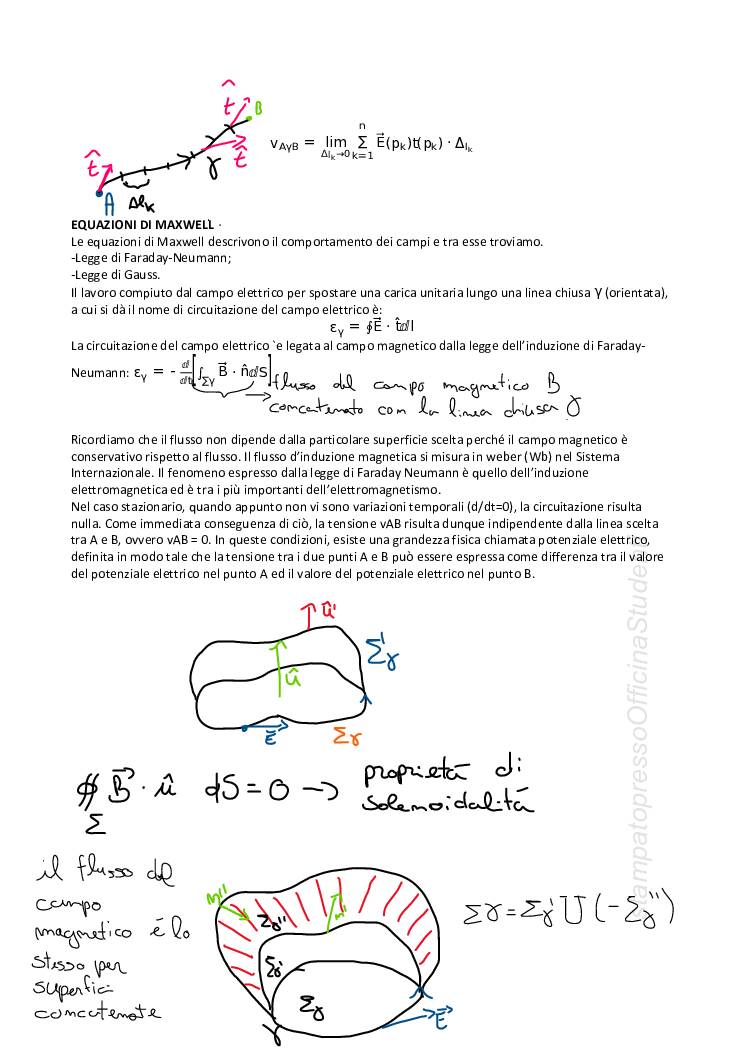 t̂
B
t̂
t̂
γ
A
Δlₖ
v_AγB = lim_{Δlₖ→0} Σ_{k=1}^{n} E⃗(pₖ)t̂(pₖ) · Δ_{lₖ}
EQUAZIONI DI MAXWELL ·
Le equazioni di Maxwell descrivono il comportamento dei campi e tra esse troviamo.
-Legge di Faraday-Neumann;
-Legge di Gauss.
Il lavoro compiuto dal campo elettrico per spostare una carica unitaria lungo una linea chiusa γ (orientata),
a cui si dà il nome di circuitazione del campo elettrico è:
ε_γ = ∮E⃗ · t̂ⅆl
La circuitazione del campo elettrico `e legata al campo magnetico dalla legge dell'induzione di Faraday-
Neumann: ε_γ = - ⅆ/ⅆt[∫_Σγ B⃗ · n̂ⅆS]
flusso del campo magnetico B
concatenato con la linea chiusa γ
Ricordiamo che il flusso non dipende dalla particolare superficie scelta perché il campo magnetico è
conservativo rispetto al flusso. Il flusso d'induzione magnetica si misura in weber (Wb) nel Sistema
Internazionale. Il fenomeno espresso dalla legge di Faraday Neumann è quello dell'induzione
elettromagnetica ed è tra i più importanti dell'elettromagnetismo.
Nel caso stazionario, quando appunto non vi sono variazioni temporali (d/dt=0), la circuitazione risulta
nulla. Come immediata conseguenza di ciò, la tensione vAB risulta dunque indipendente dalla linea scelta
tra A e B, ovvero vAB = 0. In queste condizioni, esiste una grandezza fisica chiamata potenziale elettrico,
definita in modo tale che la tensione tra i due punti A e B può essere espressa come differenza tra il valore
del potenziale elettrico nel punto A ed il valore del potenziale elettrico nel punto B.
û'
Σ'γ
û
E⃗
Σγ
∯_Σ B⃗ · û dS = 0 → proprietà di
solenoidalità
il flusso del
campo
magnetico è lo
stesso per
superfici
concatenate
m''
Σγ''
m'
Σγ'
Σγ
γ
E⃗
Σγ = Σγ' ∪ (-Σγ'')
stampatopressoOfficinaStude